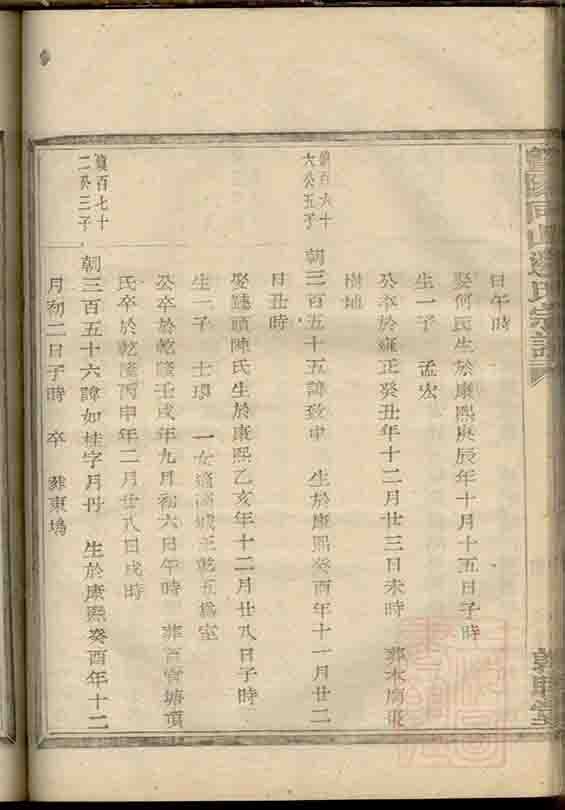 日午時
娶何氏生於康熙庚辰年十月十五日子時
生一子 孟宏
公卒於雍正癸丑年十二月廿三日未時 葬木
樹地
百六十
六公五子
朝三百五十五諱致中 生於康熙癸酉年十一月廿二
日丑時
娶 頭陳氏生於康熙乙亥年十二月廿八日子時
生一子 士環 一女適 城王乾五為室
公卒於乾隆壬戌年九月初六日午時 葬 塘頭
氏卒於乾隆丙申年二月廿八日戌時
百七十
二公三子
朝三百五十六諱如桂字月丹 生於康熙癸酉年十二
月初二日子時 卒 葬東塢